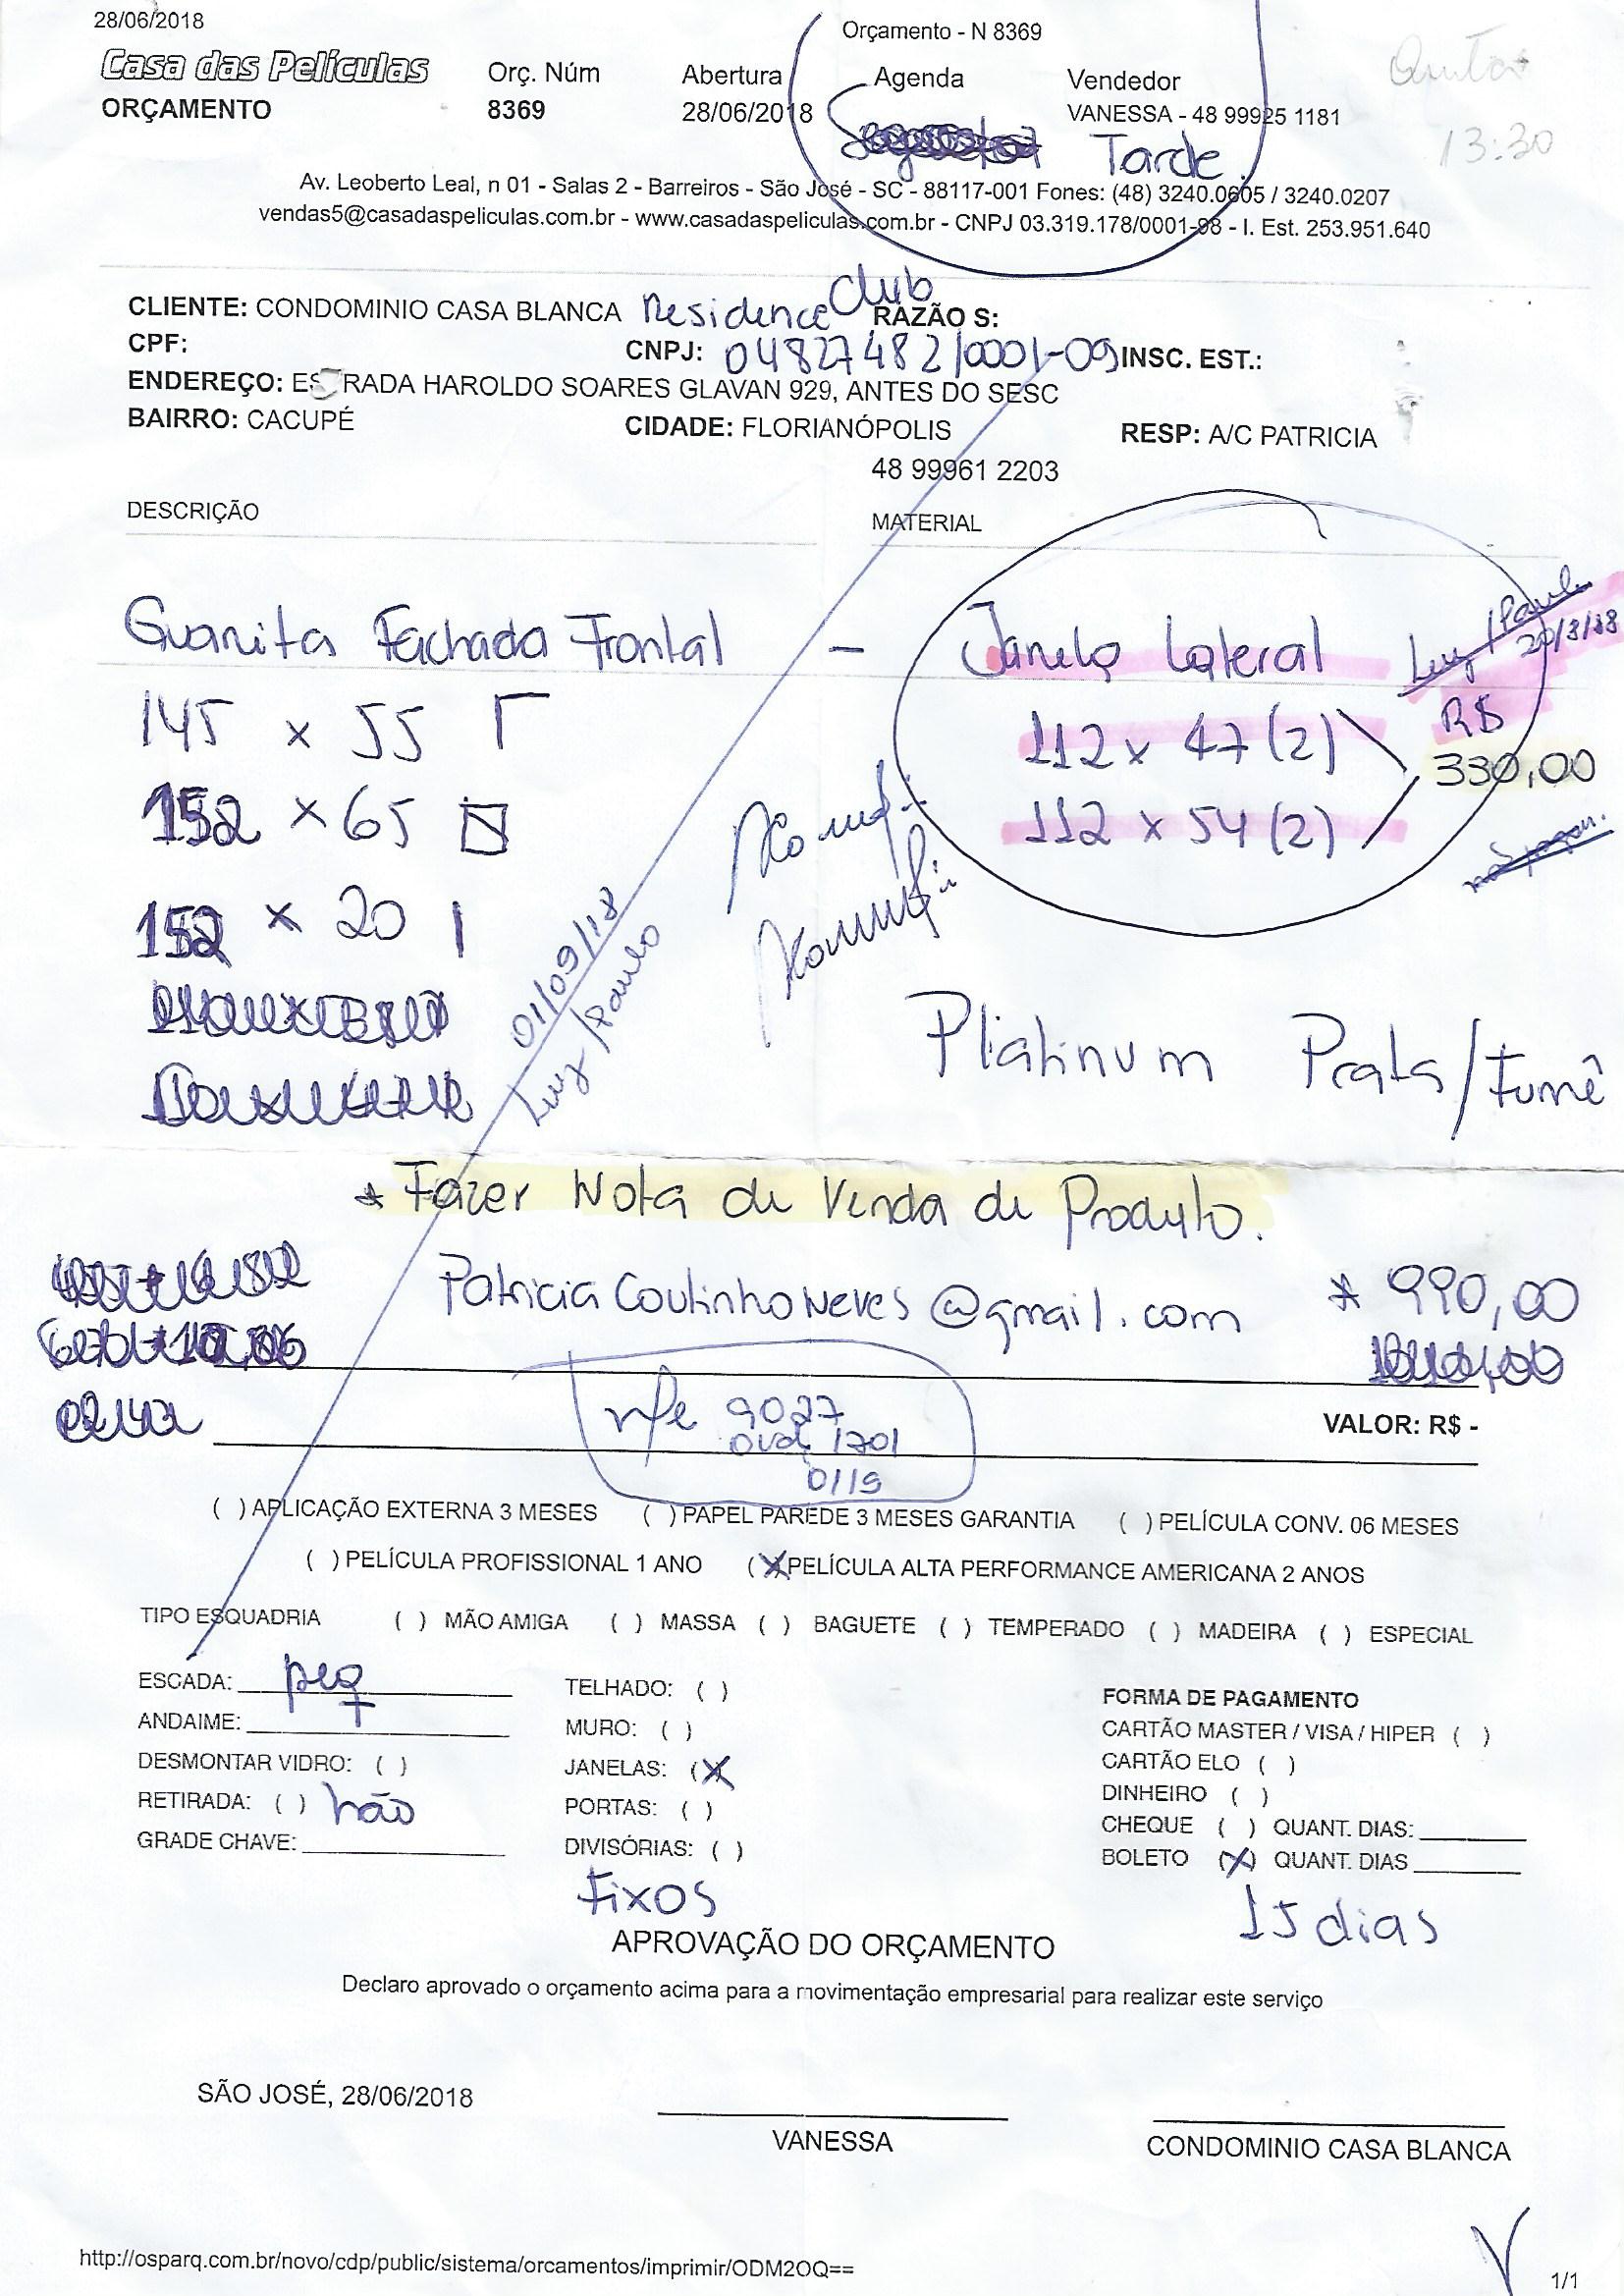 28/06/2018
Orçamento - N 8369
Casa das Películas
Orç. Núm
Abertura
Agenda
Vendedor
Quinta
ORÇAMENTO
8369
28/06/2018
VANESSA - 48 99925 1181
Tarde
13:30
Av. Leoberto Leal, n 01 - Salas 2 - Barreiros - São José - SC - 88117-001 Fones: (48) 3240.0605 / 3240.0207
vendas5@casadaspeliculas.com.br - www.casadaspeliculas.com.br - CNPJ 03.319.178/0001-98 - I. Est. 253.951.640
CLIENTE: CONDOMINIO CASA BLANCA Residence Club RAZÃO S:
CPF:
CNPJ: 04827482/0001-09 INSC. EST.:
ENDEREÇO: ESTRADA HAROLDO SOARES GLAVAN 929, ANTES DO SESC
BAIRRO: CACUPÉ
CIDADE: FLORIANÓPOLIS
RESP: A/C PATRICIA
48 99961 2203
DESCRIÇÃO
MATERIAL
Guarita Fachada Frontal - Janela Lateral
Luiz/Paulo
145 x 55
112 x 47 (2)
R$
330,00
152 x 65
112 x 54 (2)
152 x 20
01/09/18
Luiz/Paulo
Platinum Prata/Fumê
* Fazer Nota de Venda de Produto.
PatriciaCoutinhoNeves@gmail.com
* 990,00
nfe 9027
1701
0119
VALOR: R$ -
( ) APLICAÇÃO EXTERNA 3 MESES ( ) PAPEL PAREDE 3 MESES GARANTIA ( ) PELÍCULA CONV. 06 MESES
( ) PELÍCULA PROFISSIONAL 1 ANO (X) PELÍCULA ALTA PERFORMANCE AMERICANA 2 ANOS
TIPO ESQUADRIA ( ) MÃO AMIGA ( ) MASSA ( ) BAGUETE ( ) TEMPERADO ( ) MADEIRA ( ) ESPECIAL
ESCADA: peq
TELHADO: ( )
FORMA DE PAGAMENTO
ANDAIME:
MURO: ( )
CARTÃO MASTER / VISA / HIPER ( )
DESMONTAR VIDRO: ( )
JANELAS: (X)
CARTÃO ELO ( )
RETIRADA: ( ) não
PORTAS: ( )
DINHEIRO ( )
GRADE CHAVE:
DIVISÓRIAS: ( )
CHEQUE ( ) QUANT. DIAS:
BOLETO (X) QUANT. DIAS
Fixos
15 dias
APROVAÇÃO DO ORÇAMENTO
Declaro aprovado o orçamento acima para a movimentação empresarial para realizar este serviço
SÃO JOSÉ, 28/06/2018
VANESSA
CONDOMINIO CASA BLANCA
http://osparq.com.br/novo/cdp/public/sistema/orcamentos/imprimir/ODM2OQ==
1/1